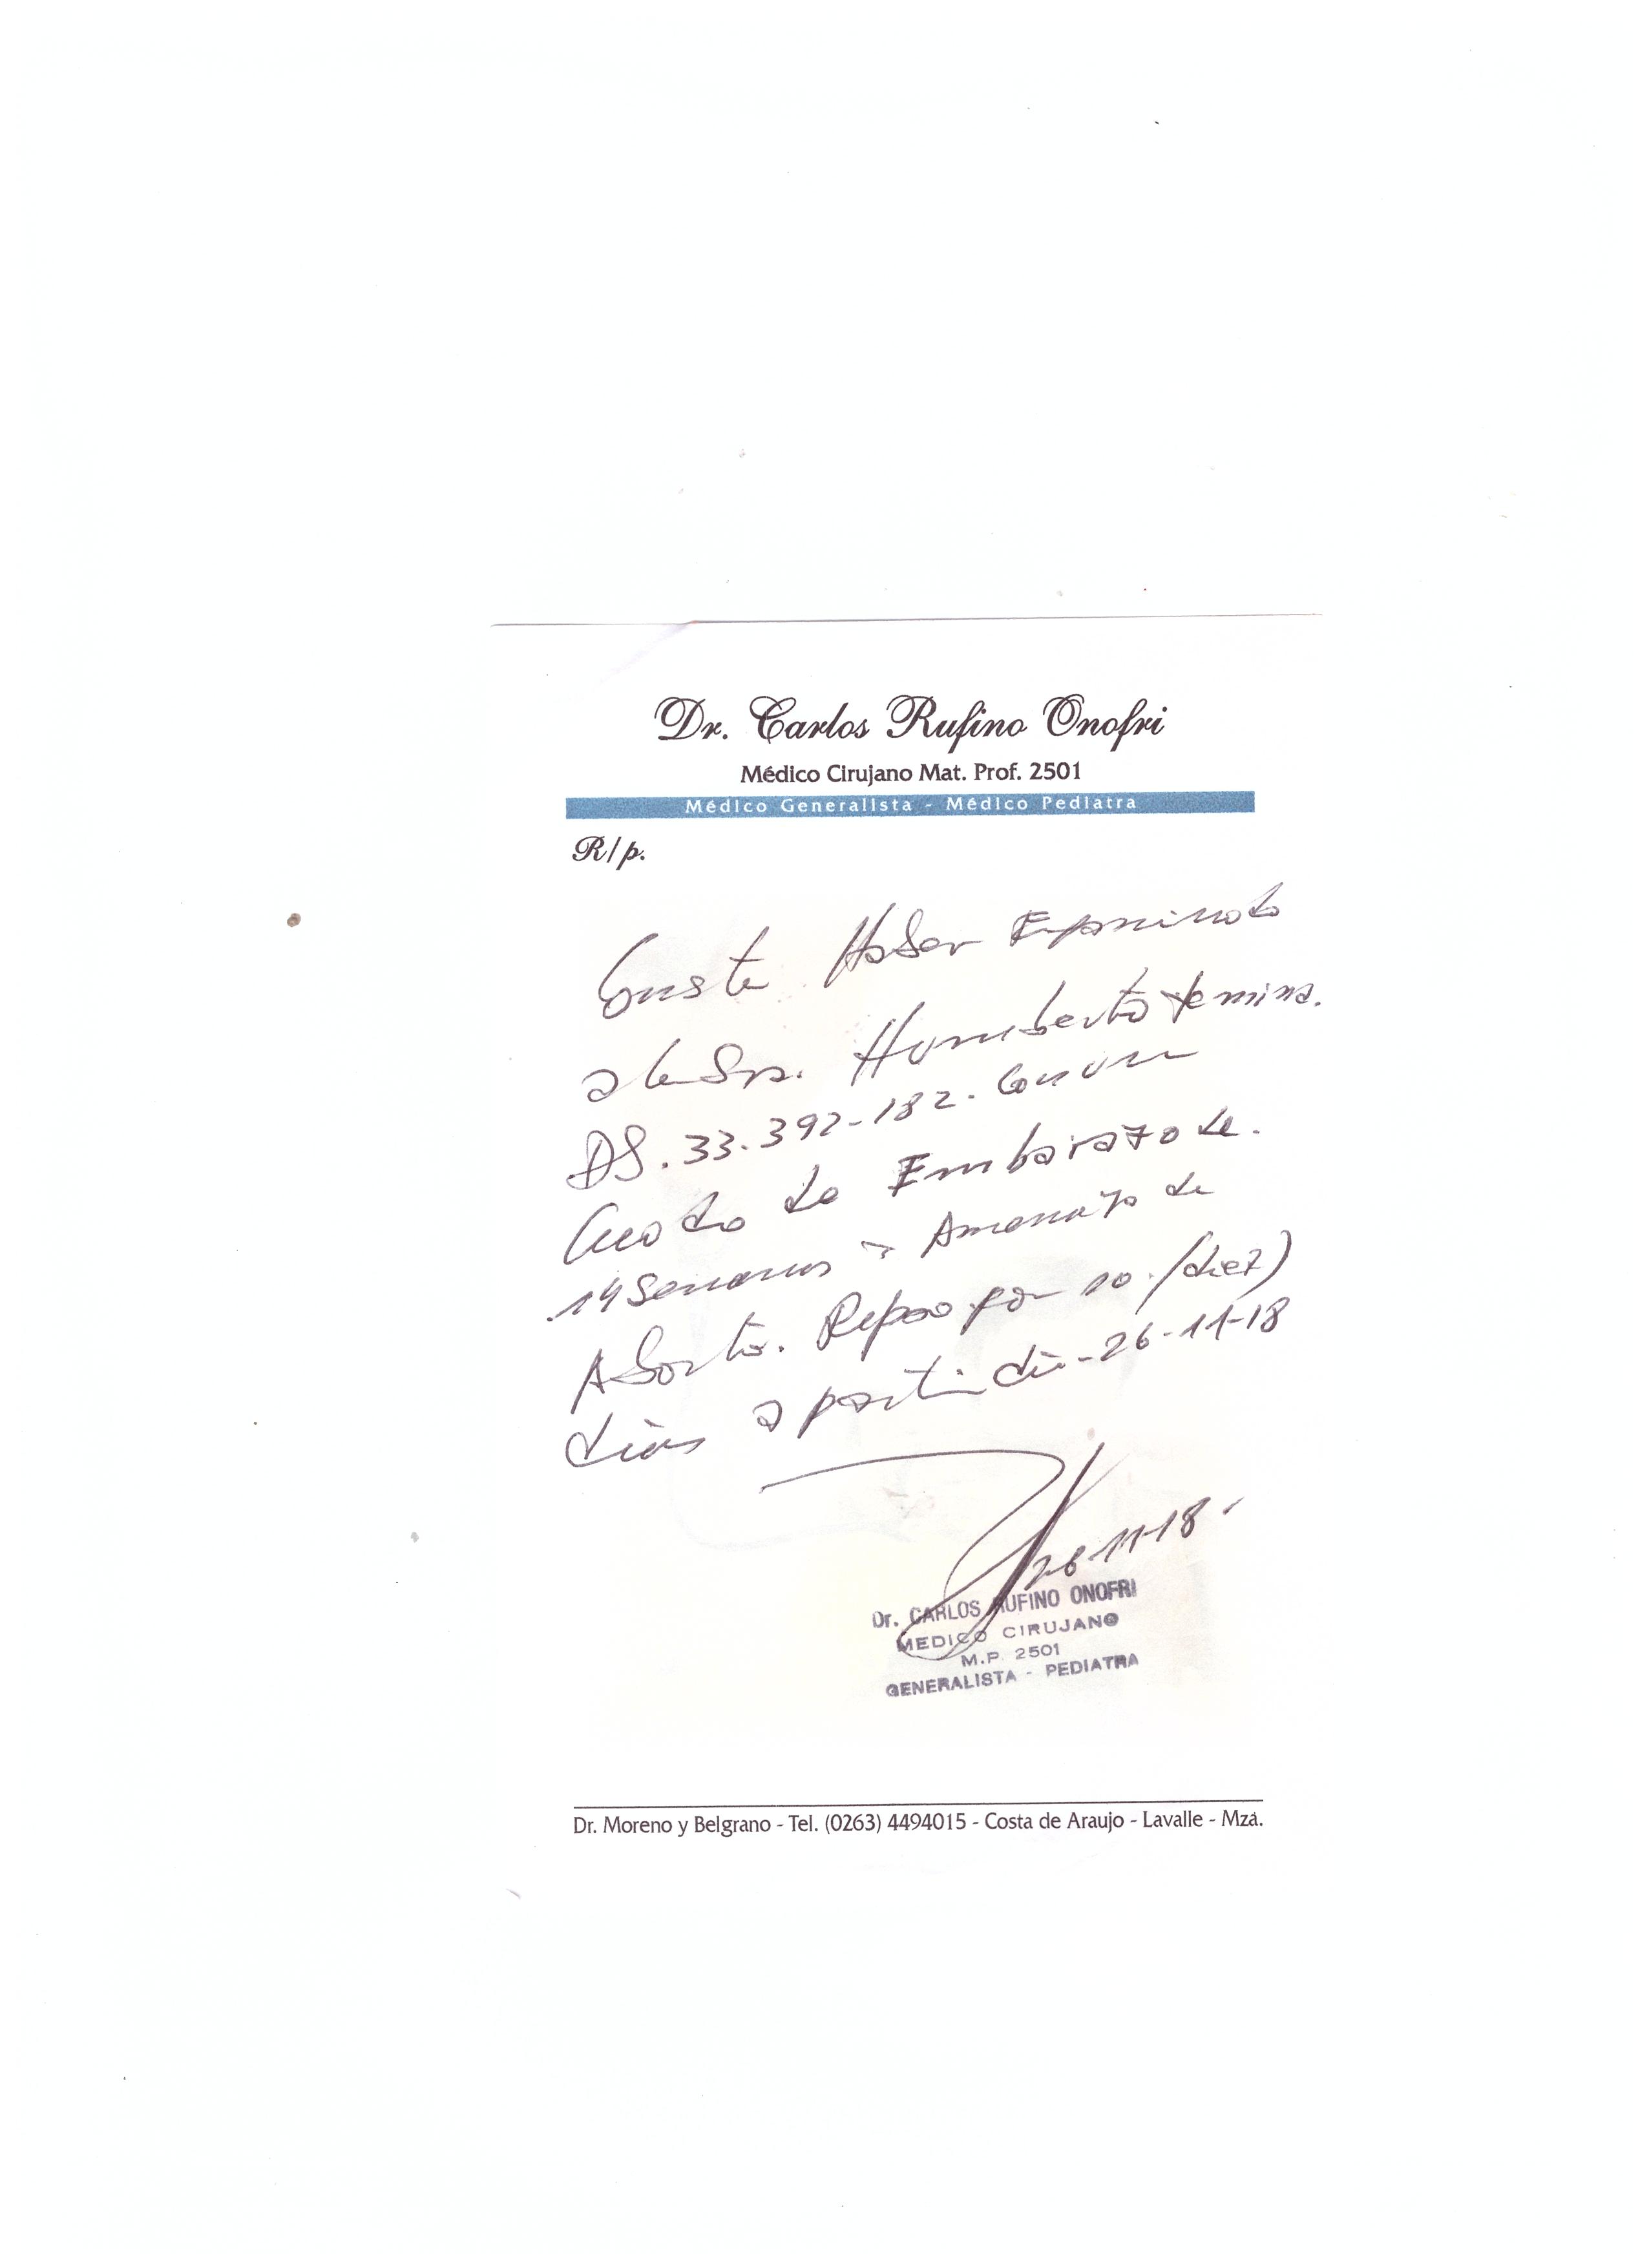 Dr. Carlos Rufino Onofri
Médico Cirujano Mat. Prof. 2501
Médico Generalista - Médico Pediatra
R/p.
Conste Haber Examinado
a la Sra. Humberto Yemina.
DS. 33.392-182. Con un
Cuadro de Embarazo de.
14 Semanas Amenaza de
Aborto. Reposo por 10. (diez)
días a partir día-26-11-18
26-11-18
Dr. CARLOS RUFINO ONOFRI
MEDICO CIRUJANO
M.P. 2501
GENERALISTA - PEDIATRA
Dr. Moreno y Belgrano - Tel. (0263) 4494015 - Costa de Araujo - Lavalle - Mza.